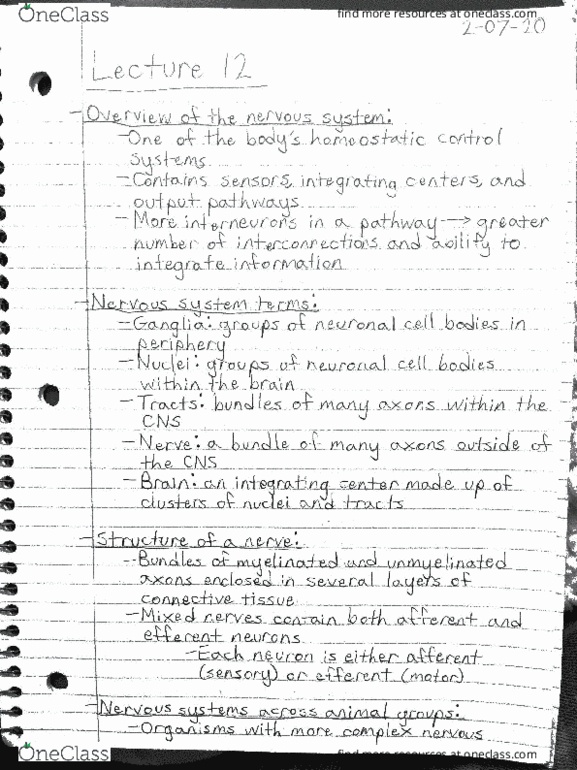 OneClass
find more resources at oneclass.com
2-07-20
Lecture 12
- Overview of the nervous system:
- One of the body's homeostatic control
systems
- Contains sensors, integrating centers, and
output pathways
- More interneurons in a pathway → greater
number of interconnections and ability to
integrate information
- Nervous system terms:
- Ganglia: groups of neuronal cell bodies in
periphery
- Nuclei: groups of neuronal cell bodies
within the brain
- Tracts: bundles of many axons within the
CNS
- Nerve: a bundle of many axons outside of
the CNS
- Brain: an integrating center made up of
clusters of nuclei and tracts
- Structure of a nerve:
- Bundles of myelinated and unmyelinated
axons enclosed in several layers of
connective tissue
- Mixed nerves contain both afferent and
efferent neurons
- Each neuron is either afferent
(sensory) or efferent (motor)
- Nervous systems across animal groups:
- Organisms with more complex nervous
OneClass
find more resources at oneclass.com